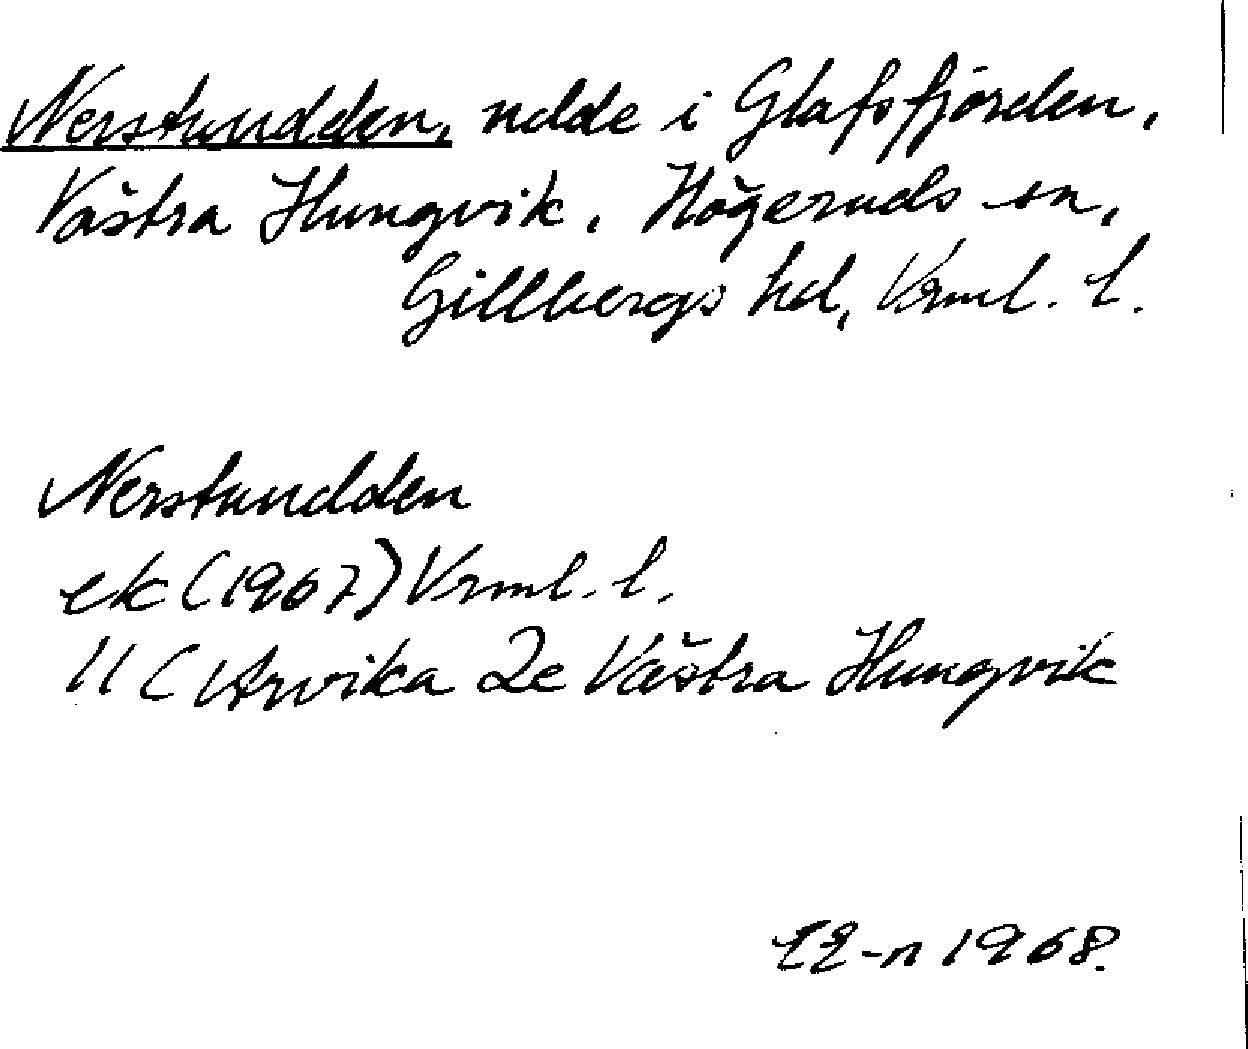 Nerstuudden, udde i Glafsfjorden,
Västra Hungvik, Högeruds sn,
Gillbergs hd, Vrml. l.
Nerstuudden
ek (1967) Vrml. l.
11 C Arvika 2e Västra Hungvik
1968.